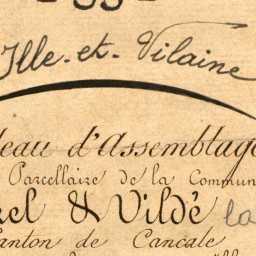 Ille-et-Vilaine
d'Assemblage
Parcellaire de la Commun
& Vildé la
anton de Cancale